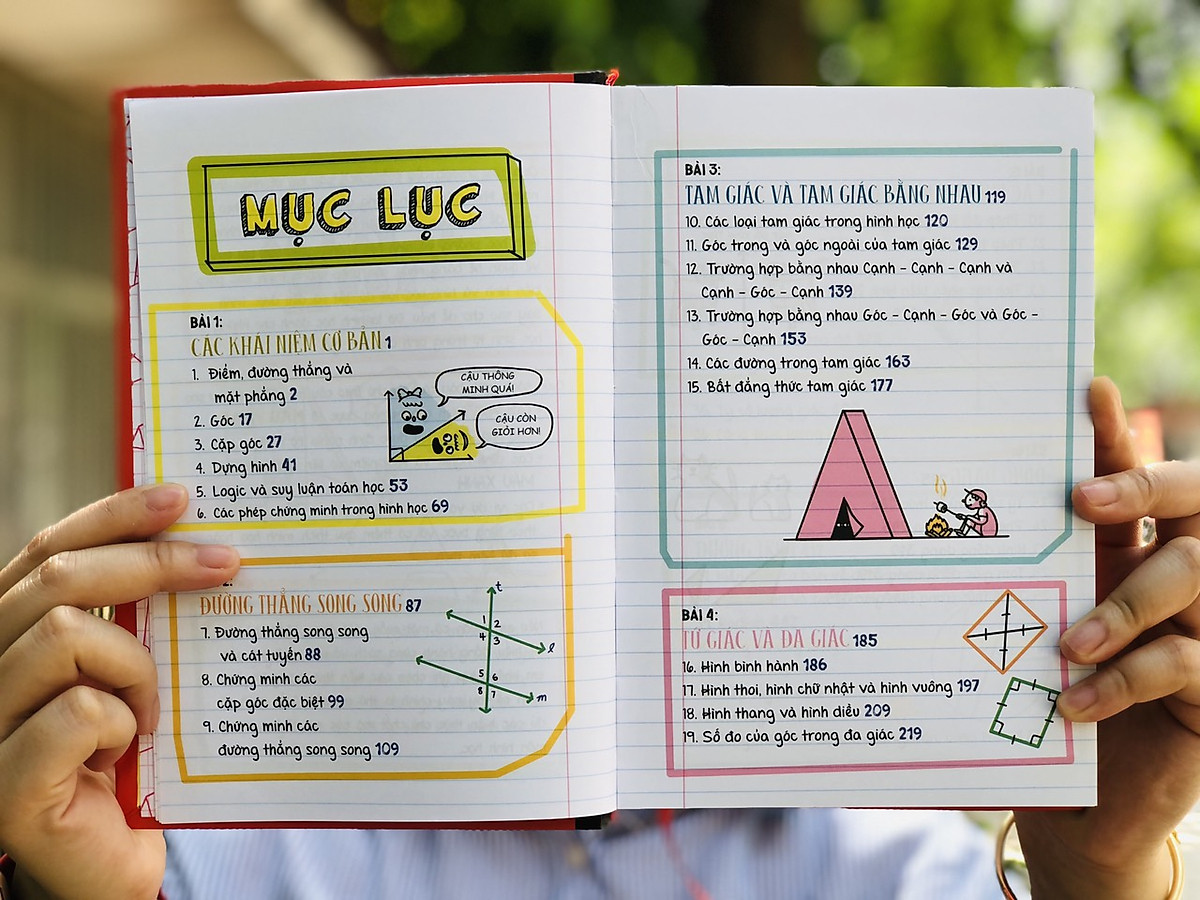 MỤC LỤC
BÀI 1:
CÁC KHÁI NIỆM CƠ BẢN 1
1. Điểm, đường thẳng và
mặt phẳng 2
2. Góc 17
3. Cặp góc 27
4. Dựng hình 41
5. Logic và suy luận toán học 53
6. Các phép chứng minh trong hình học 69
CẬU THÔNG
MINH QUÁ!
CẬU CÒN
GIỎI HƠN!
2:
ĐƯỜNG THẲNG SONG SONG 87
7. Đường thẳng song song
và cát tuyến 88
8. Chứng minh các
cặp góc đặc biệt 99
9. Chứng minh các
đường thẳng song song 109
t
1 2
4 3
l
5 6
8 7
m
BÀI 3:
TAM GIÁC VÀ TAM GIÁC BẰNG NHAU 119
10. Các loại tam giác trong hình học 120
11. Góc trong và góc ngoài của tam giác 129
12. Trường hợp bằng nhau Cạnh - Cạnh - Cạnh và
Cạnh - Góc - Cạnh 139
13. Trường hợp bằng nhau Góc - Cạnh - Góc và Góc -
Góc - Cạnh 153
14. Các đường trong tam giác 163
15. Bất đẳng thức tam giác 177
BÀI 4:
TỨ GIÁC VÀ ĐA GIÁC 185
16. Hình bình hành 186
17. Hình thoi, hình chữ nhật và hình vuông 197
18. Hình thang và hình diều 209
19. Số đo của góc trong đa giác 219